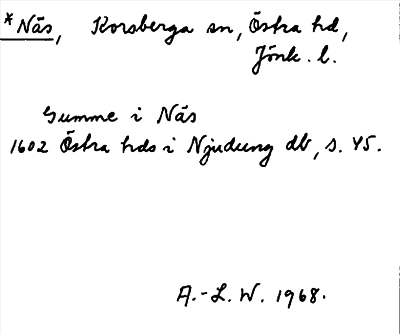 *Näs, Korsberga sn, Östra hd,
Jönk. l.
Gumme i Näs
1602 Östra hds i Njudung db, s. 45.
A.-L. W. 1968.